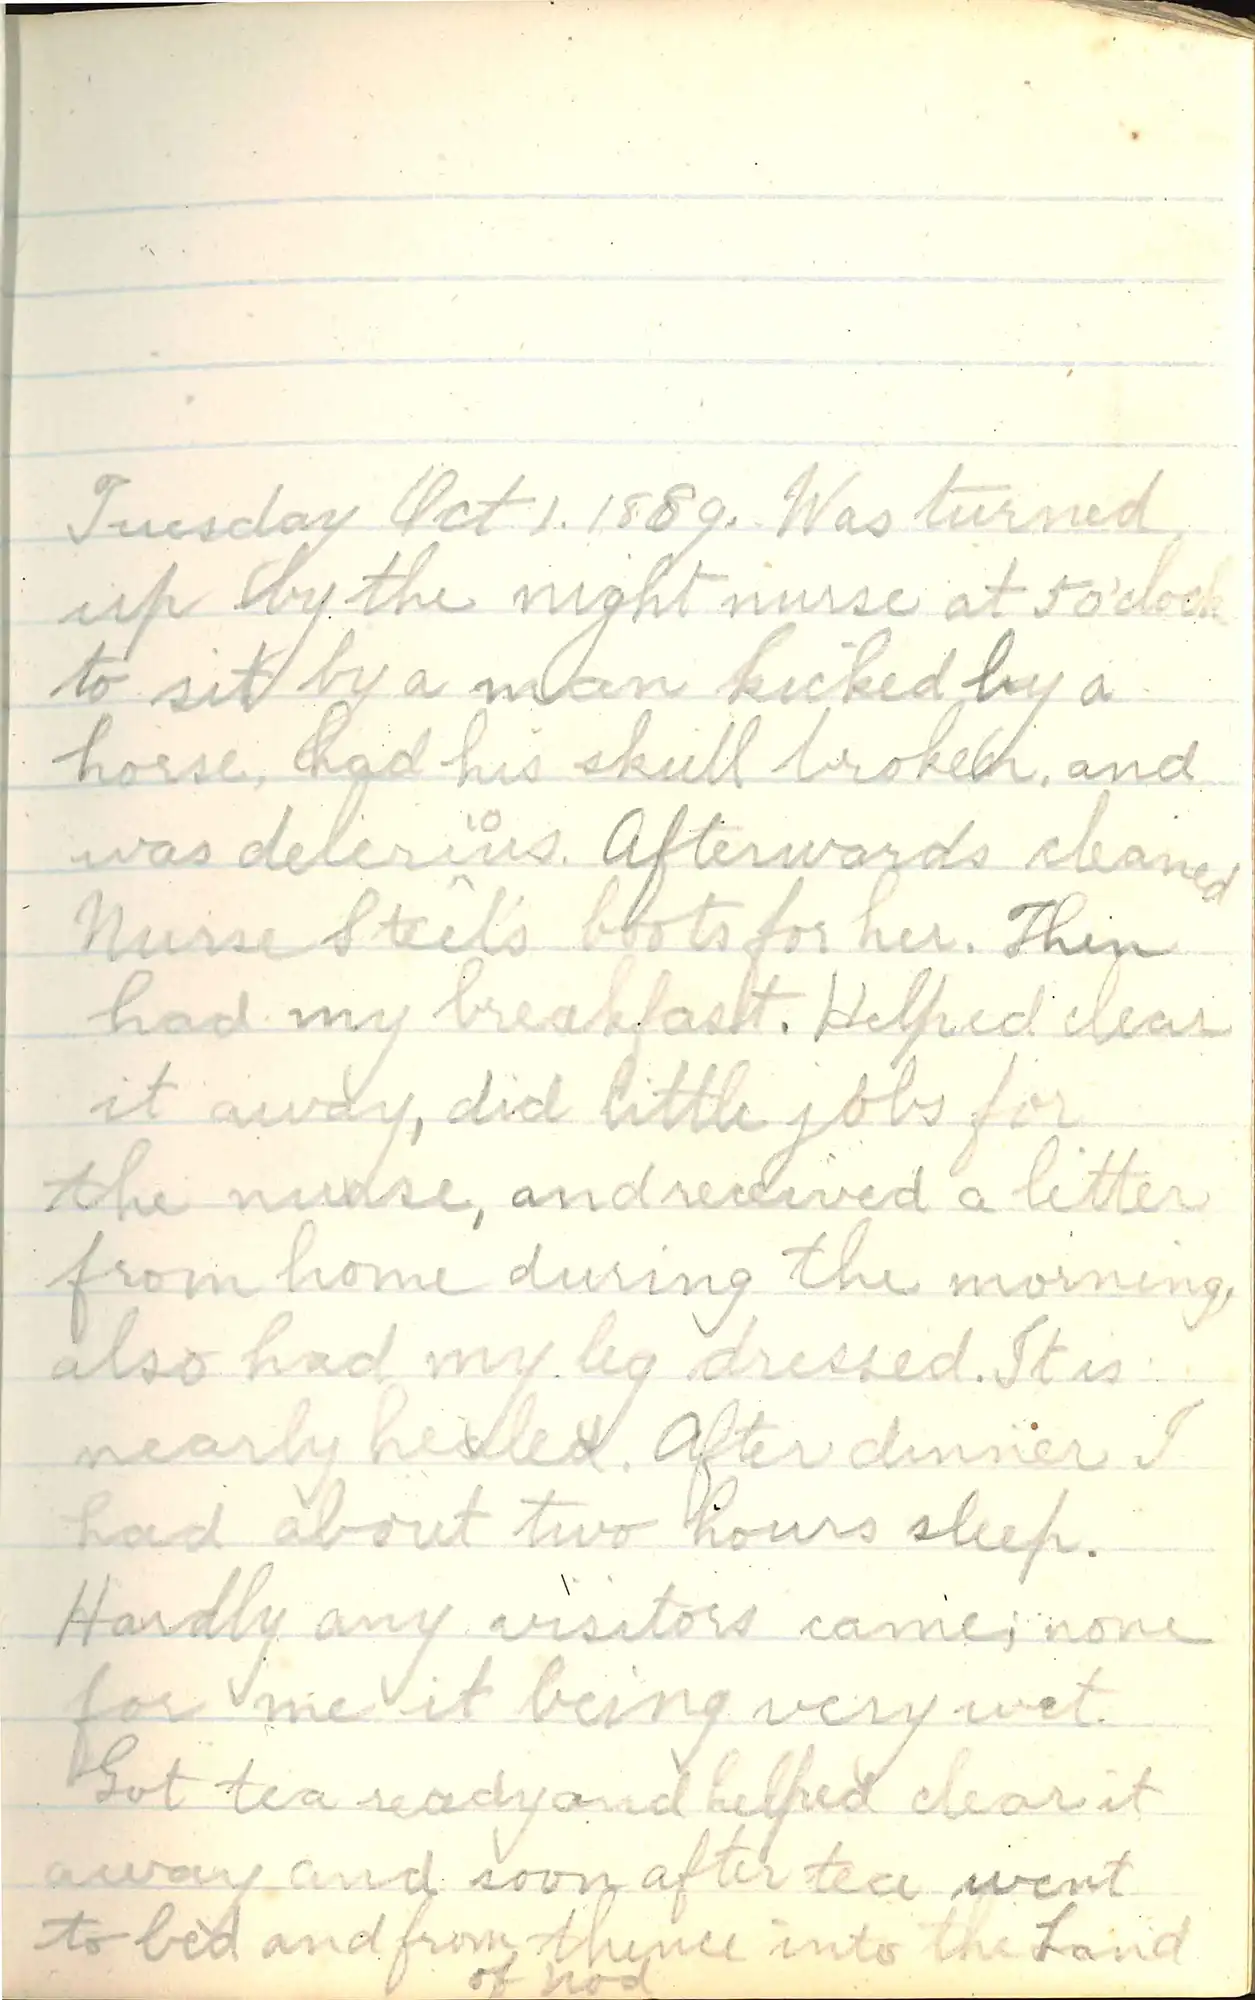 Tuesday Oct 1. 1889. Was turned
up by the night nurse at 5 o'clock
to sit by a man kicked by a
horse, had his skull broken, and
was delerious. Afterwards cleaned
Nurse Steel's boots for her. Then
had my breakfast. Helped clear
it away, did little jobs for
the nurse, and received a letter
from home during the morning,
also had my leg dressed. It is
nearly healed. After dinner I
had about two hours sleep.
Hardly any visitors came; none
for me it being very wet.
Got tea ready and helped clear it
away and soon after tea went
to bed and from thence into the Land
of nod